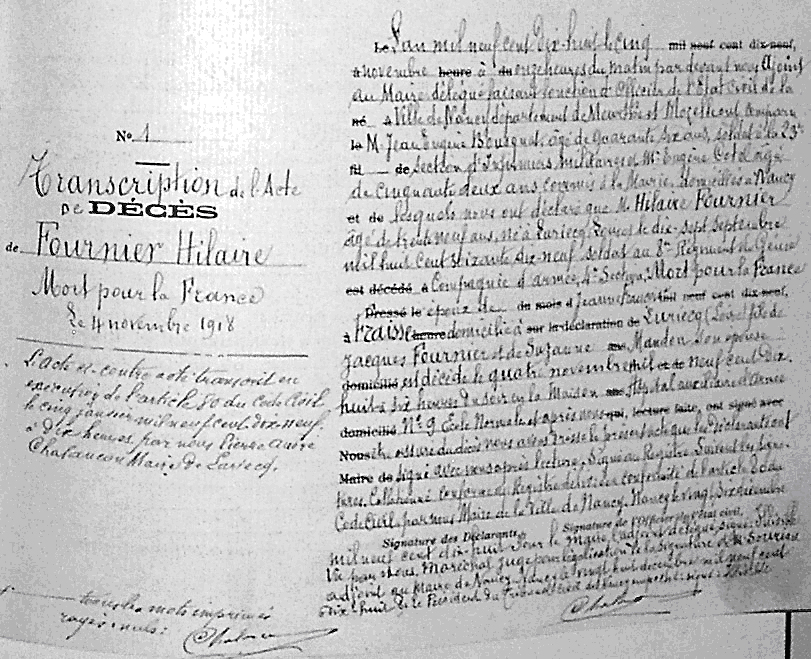 No 1
Transcription de l'Acte
DE DÉCÈS
de Fournier Hilaire
Mort pour la France
Le 4 novembre 1918
L'acte ci-contre a été transcrit en
exécution de l'article 80 du Code Civil
le cinq janvier mil neuf cent dix neuf
à dix heures par nous Pierre André
Chalancon Maire de Luriecq.
tous les mots imprimés
rayés nuls:
Le L'an mil neuf cent Dix-huit le cinq mil neuf cent dix-neuf,
à novembre heure à du onze heures du matin par devant nous Adjoint
au Maire délégué faisant fonction d'Officier de l'Etat Civil de la
né à Ville de Nancy département de Meurthe et Moselle ont comparu
le M. Jean Eugène Bousquet, âgé de quarante six ans, soldat à la 23e
fil de Section d'Infirmiers militaires et Mr Eugène Cotel âgé
de cinquante deux ans commis à la Mairie, domiciliés à Nancy
et de lesquels nous ont déclaré que M. Hilaire Fournier
âgé de trente neuf ans, né à Luriecq (Loire) le dix-sept septembre
mil huit cent soixante dix-neuf soldat au 8e Régiment du Génie
est décédé à Compagnie d'armée, 4e Section, Mort pour la France
Dressé le époux de du mois d Jeanne mil neuf cent dix-neuf,
à Fraisse heure domicilié à sur la déclaration de Luriecq (Loire) fils de
Jacques Fournier et de Suzanne ans Mandon son épouse
domicilié est décédé le quatre novembre mil et de neuf cent dix
huit à six heures du soir en la Maison ans Hôpital auxiliaire d'Armée
domicilié No 9 École Normale et après nous qui, lecture faite, ont signé avec
Nous être assuré du décès nous avons dressé le présent acte que les Déclarants ont
Maire de signé avec nous après lecture. Signé au Registre. Suivent les signa-
tures. Collationné conforme au Registre délivré en conformité de l'article 80 du
Code Civil par nous Maire de la Ville de Nancy. Nancy le vingt six décembre
Signature des Déclarants, Signature de l'Officier de l'état civil,
mil neuf cent dix-huit Pour le Maire, l'adjoint délégué signé:
Vu par Nous, Maréchal Juge pour légalisation de la signature de M
adjoint au Maire de Nancy Nancy le vingt huit décembre mil neuf cent
dix huit Le Président du Tribunal signé: